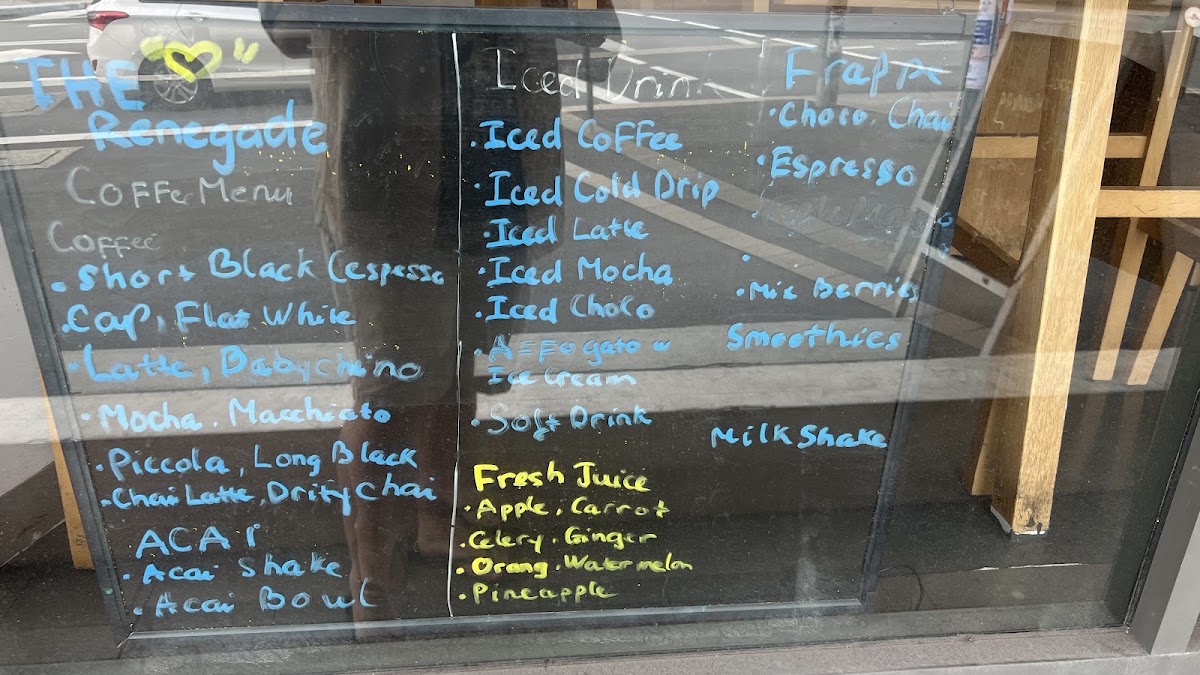 THE
Renegade
Coffee Menu
Coffee
• Short Black (espesso
• Cap, Flat White
• Latte, Babychino
• Mocha. Macchiato
• Piccola, Long Black
• Chai Latte, Drity Chai
ACAI
• Acai Shake
• Acai Bowl
Iced Drink
• Iced Coffee
• Iced Cold Drip
• Iced Latte
• Iced Mocha
• Iced Choco
• Affogato w
Ice Cream
• Soft Drink
Fresh Juice
• Apple. Carrot
• Celery. Ginger
• Orang. Watermelon
• Pineapple
Frappe
• Choco. Chai
• Espresso
• Mix Berries
Smoothies
Milk Shake